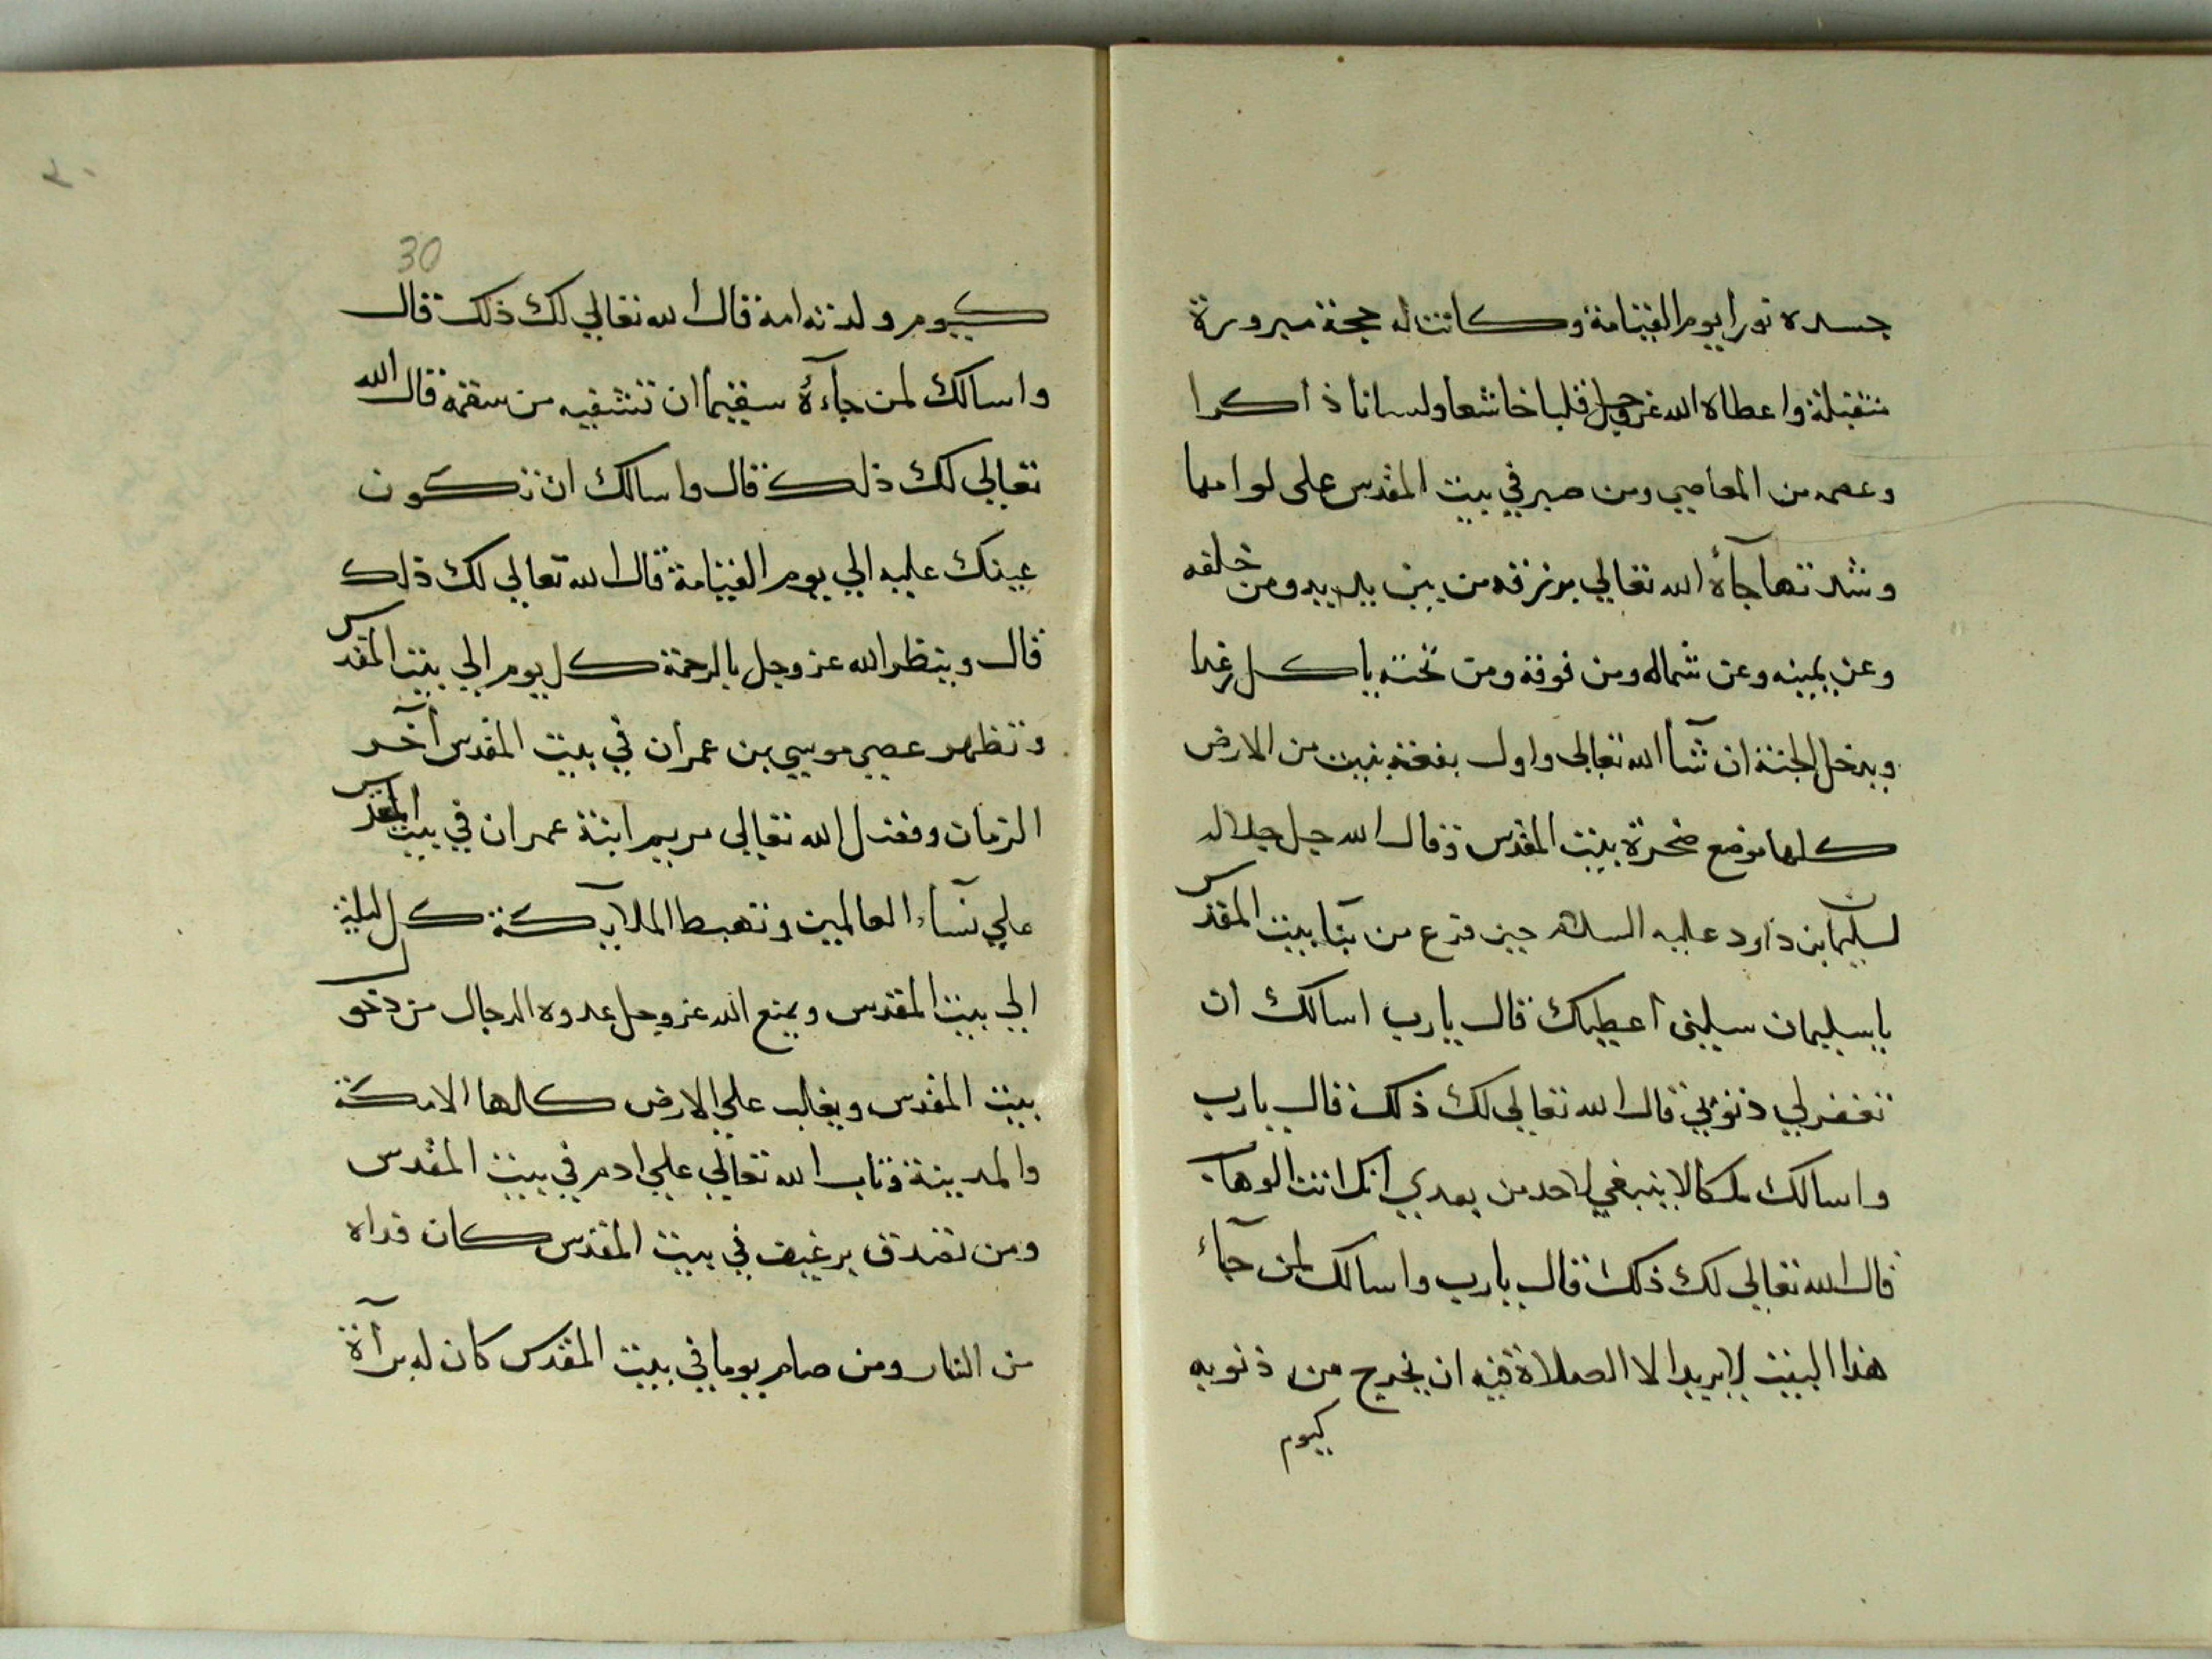 جسده نورا يوم القيامة وكانت له حجة مبرورة
متقبلة واعطاه الله عز وجل قلبا خاشعا ولسانا ذاكرا
وعصمه من المعاصي ومن صبر في بيت المقدس على لوامها
وشدتها جآءه الله تعالي برزقه من بين يديه ومن خلفه
وعن يمينه وعن شماله ومن فوقه ومن تحته ياكل رغدا
ويدخل الجنة ان شآ الله تعالى واول بقعة بنيت من الارض
كلها موضع صخرة بيت المقدس وقال الله جل جلاله
لسليمان بن داود عليه السلام حين فرغ من بنا بيت المقدس
ياسليمان سليني أعطيك قال يارب اسالك ان
تغفرلي ذنوبي قال الله تعالى لك ذلك قال يارب
واسالك ملكا لا ينبغي لاحد من بعدي انك انت الوهاب
قال الله تعالى لك ذلك قال يارب واسالك لمن جآء
هذا البيت لايريد الا الصلاة فيه ان يخرج من ذنوبه
كيوم
30
كيوم ولدته امه قال الله تعالي لك ذلك قال
واسالك لمن جآءهُ سقيما ان تشفيه من سقمه قال الله
تعالي لك ذلك قال واسالك ان تكون
عينك عليه الي يوم القيامة قال الله تعالي لك ذلك
قال وينظر الله عز وجل بالرحمة كل يوم الي بيت المقدس
وتظهر عصي موسي بن عمران في بيت المقدس آخر
الزمان وفضل الله تعالى مريم ابنة عمران في بيت المقدس
علي نسآء العالمين وتهبط الملايكة كل ليلة
الي بيت المقدس ويمنع الله عز وجل عدوه الدجال من دخول
بيت المقدس ويغلب علي الارض كلها الا مكة
والمدينة وتاب الله تعالي علي ادم في بيت المقدس
ومن تصدق برغيف في بيت المقدس كان فداه
من النار ومن صام يوما في بيت المقدس كان له برآة